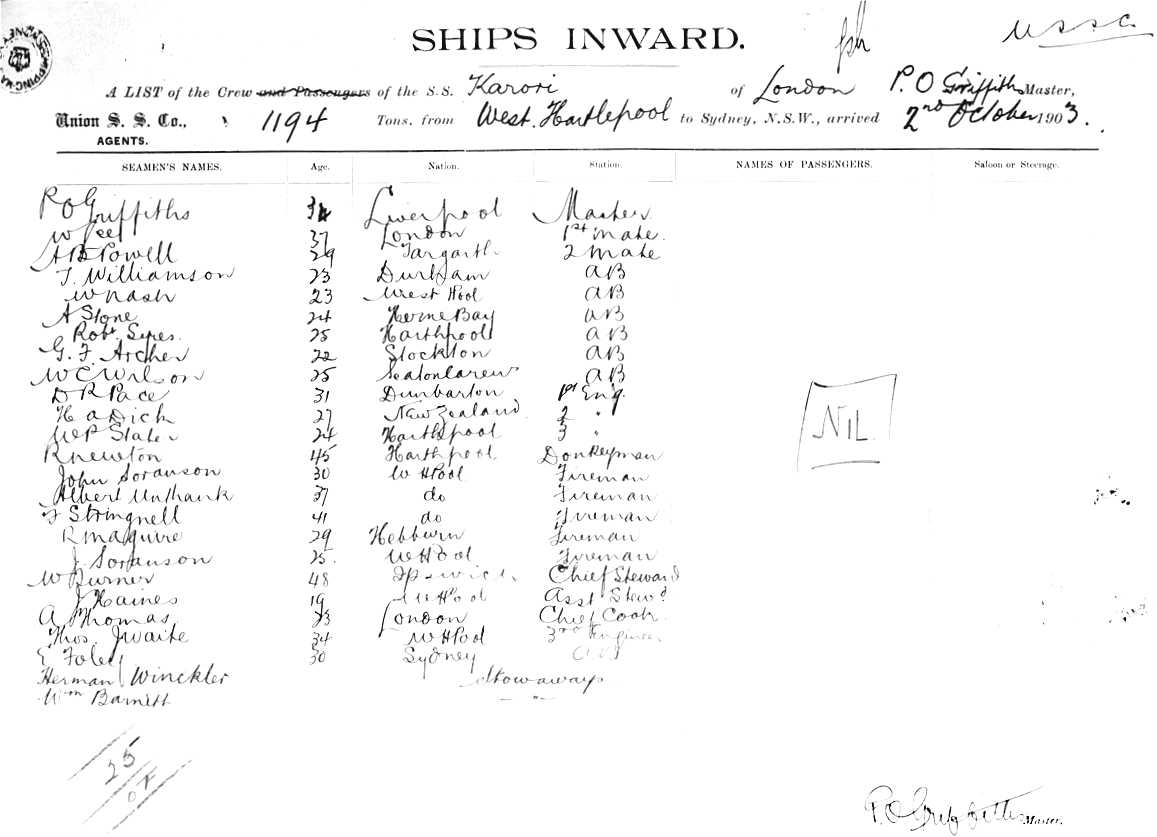 SHIPS INWARD.
U S S Co
A LIST of the Crew and Passengers of the S.S. Karori of London P. O Griffiths Master,
Union S. S. Co., 1194 Tons, from West Hartlepool to Sydney, N.S.W., arrived 2nd October 1903.
AGENTS.
SEAMEN'S NAMES. Age. Nation. Station. NAMES OF PASSENGERS. Saloon or Steerage.
P O Griffiths 34 Liverpool Master
W 37 London 1st Mate.
A B Powell 29 2 Mate
T. Williamson 23 Durham AB
W Nash 23 West Pool AB
A Stone 24 Herne Bay AB
Robt 25 Harthpool AB
G. F. Archer 22 Stockton AB
W C Wilson 25 AB
D R Pace 31 Dunbarton 1st Eng.
H A Dick 27 New Zealand 2 "
W P Slater 24 Harthpool 3 "
R Newton 45 Harthpool Donkeyman
John Soranson 30 W H Pool Fireman
Albert Unthank 37 do Fireman
F Stringnell 41 do Fireman
R Maguire 29 Hebburn Fireman
J. Soranson 25. W H Pool Fireman
W 48 Ipswich Chief Steward
J Haines 19 W H Pool Asst Stewd
A Thomas 23 London Chief Cook
Thos. 34 W H Pool 3rd Engineer
E Foley 30 Sydney AB
Herman Winckler Stowaways
Wm Barnett — " —
NIL.
25
P. O Griffiths Master.